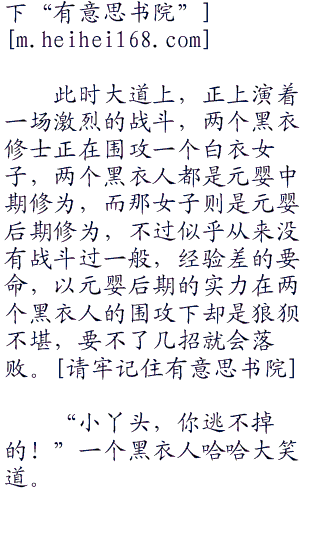 下“有意思书院”]
[m.heihei168.com]
此时大道上，正上演着
一场激烈的战斗，两个黑衣
修士正在围攻一个白衣女
子，两个黑衣人都是元婴中
期修为，而那女子则是元婴
后期修为，不过似乎从来没
有战斗过一般，经验差的要
命，以元婴后期的实力在两
个黑衣人的围攻下却是狼狈
不堪，要不了几招就会落
败。[请牢记住有意思书院]
“小丫头，你逃不掉
的！”一个黑衣人哈哈大笑
道。